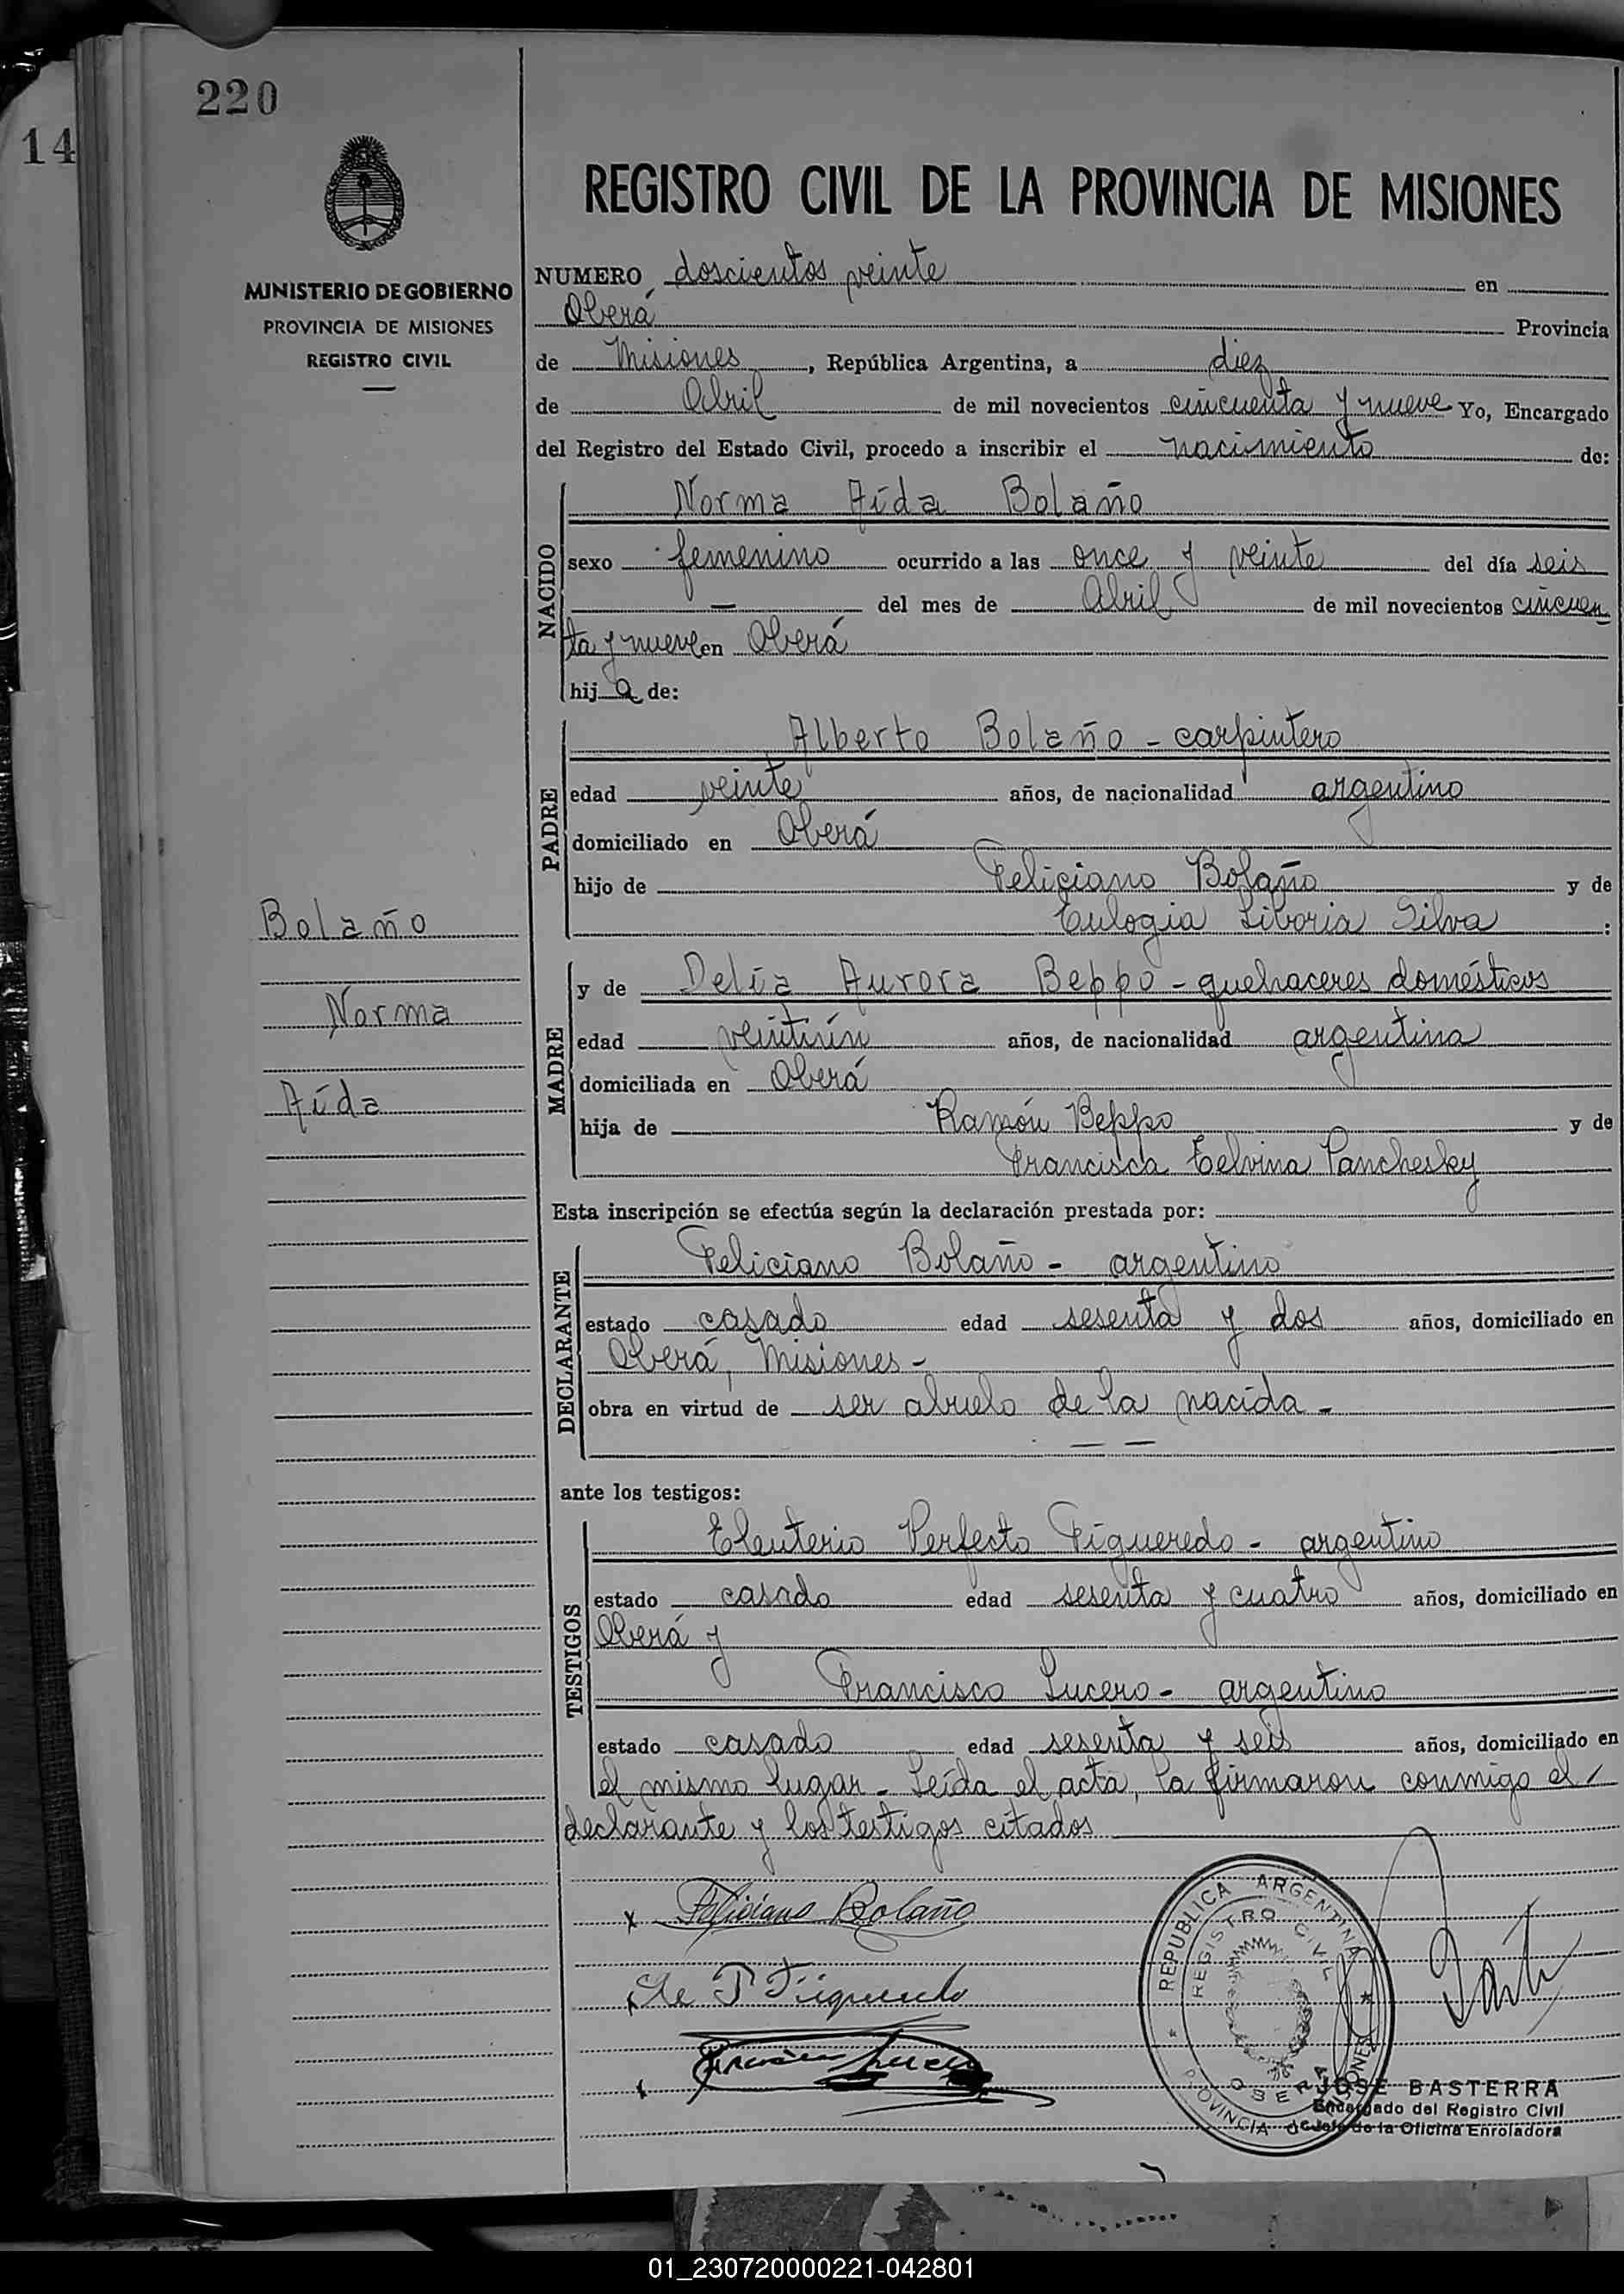 220
14
MINISTERIO DE GOBIERNO
PROVINCIA DE MISIONES
REGISTRO CIVIL
REGISTRO CIVIL DE LA PROVINCIA DE MISIONES
NUMERO doscientos veinte en
Oberá Provincia
de Misiones, República Argentina, a diez
de Abril de mil novecientos cincuenta y nueve Yo, Encargado
del Registro del Estado Civil, procedo a inscribir el nacimiento de:
NACIDO
Norma Aída Bolaño
sexo femenino ocurrido a las once y veinte del día seis
— del mes de Abril de mil novecientos cincuen
ta y nueve en Oberá
hij a de:
PADRE
Alberto Bolaño - carpintero
edad veinte años, de nacionalidad argentino
domiciliado en Oberá
hijo de Feliciano Bolaño y de
Eulogia Liboria Silva :
Bolaño
Norma
Aída
MADRE
y de Delia Aurora Beppo - quehaceres domésticos
edad veintiún años, de nacionalidad argentina
domiciliada en Oberá
hija de Ramón Beppo y de
Francisca Telvina Panchesky
Esta inscripción se efectúa según la declaración prestada por:
DECLARANTE
Feliciano Bolaño - argentino
estado casado edad sesenta y dos años, domiciliado en
Oberá, Misiones -
obra en virtud de ser abuelo de la nacida -
— —
ante los testigos:
TESTIGOS
Eleuterio Perfecto Figueredo - argentino
estado casado edad sesenta y cuatro años, domiciliado en
Oberá y
Francisco Lucero - argentino
estado casado edad sesenta y seis años, domiciliado en
el mismo lugar - Leída el acta, la firmaron conmigo el
declarante y los testigos citados
x Feliciano Bolaño
x Ele P Figueredo
x Francisco Lucero
REPUBLICA ARGENTINA
REGISTRO CIVIL
OBERA
PROVINCIA DE MISIONES
JOSE BASTERRA
Encargado del Registro Civil
Jefe de la Oficina Enroladora
01_230720000221-042801